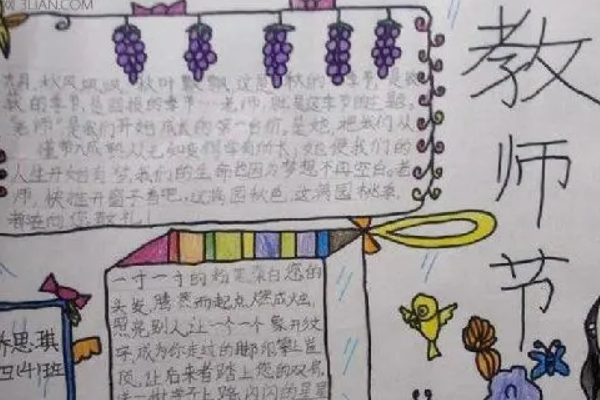 3LIAN.COM
教师节
九月,秋风飒飒,秋叶飘飘,这是秋的季节,是收
获的季节,是回报的季节…老师,就是这季节的主题。
"老师"是我们开始成长的第一台阶,是她,把我们从
懵懂带入成熟,从无知变得学有所长;她使我们的
人生开始有梦,我们的生命也因为梦想不再空白。老
师,快推开窗子看吧,这满园秋色,这满园桃李,
都在向您敬礼!
一寸一寸的粉笔染白您的
头发,腾然而起点燃成火,
照亮别人,让一个一个象形文
字,成为你走纹的脚印攀上笆
顶,让后来者踏上您的双肩,
思琪
四(4)班